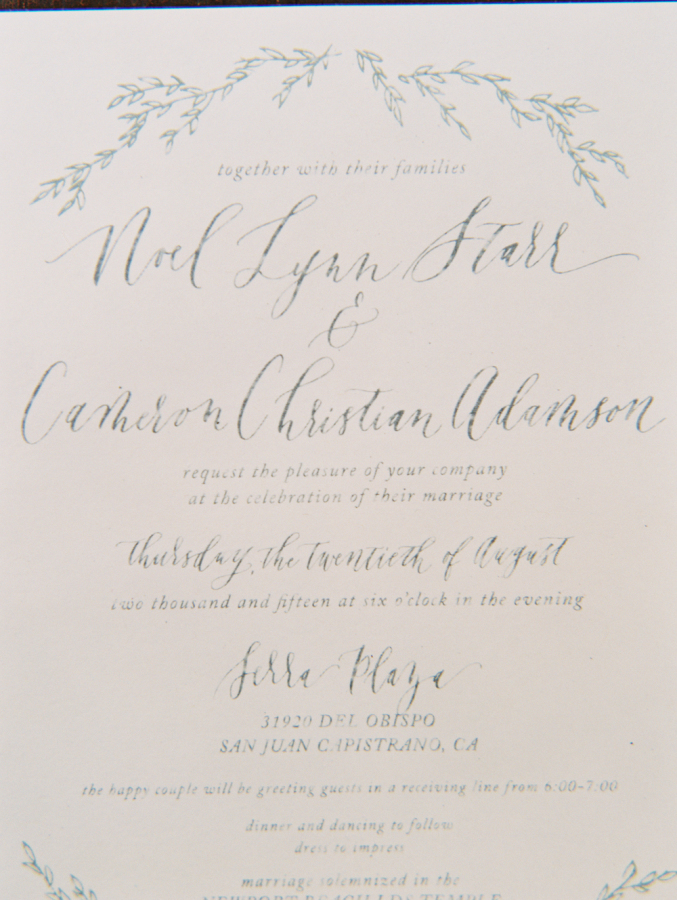 together with their families
Noel Lynn Starr
&
Cameron Christian Adamson
request the pleasure of your company
at the celebration of their marriage
thursday, the twentieth of August
two thousand and fifteen at six o'clock in the evening
Serra Plaza
31920 DEL OBISPO
SAN JUAN CAPISTRANO, CA
the happy couple will be greeting guests in a receiving line from 6:00-7:00
dinner and dancing to follow
dress to impress
marriage solemnized in the
NEWPORT BEACH LDS TEMPLE